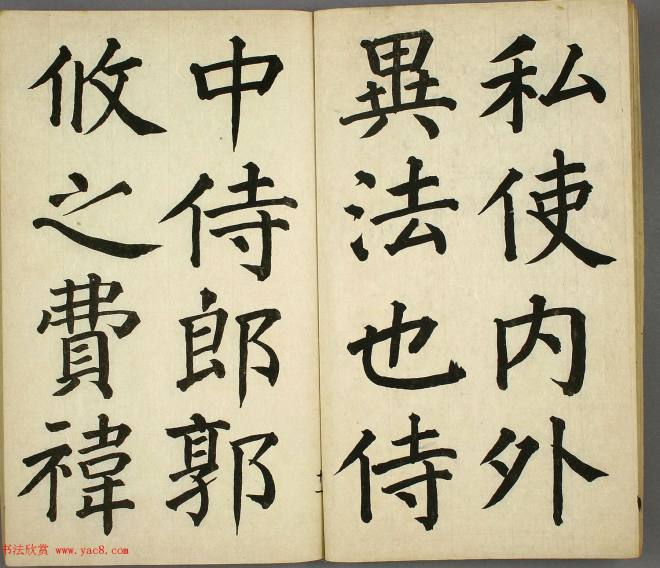 私使内外
異法也侍
中侍郎郭
攸之費禕
书法欣赏 www.yac8.com